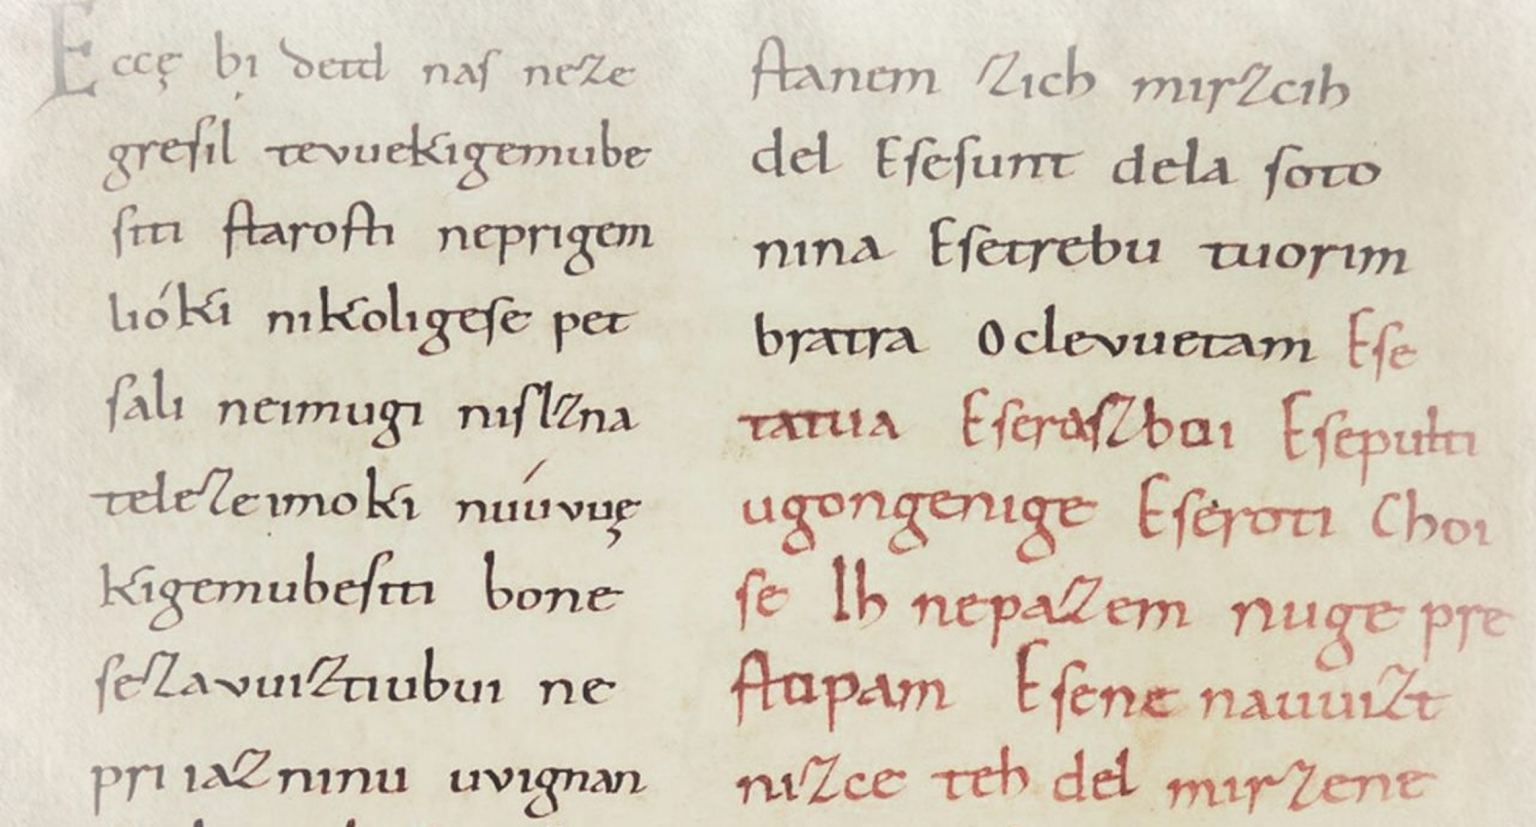 Eccę bi detd naſ neze
greſil tevuekigemube
ſiti ſtaroſti neprigem
lióki nikoligeſe pet
ſali neimugi niſlzna
telezeimoki núvvuę
kigemubeſiti bone
ſezavuiztiubui ne
pri iazninu uvignan
ſtanem zich mirzcih
del Eſeſunt dela ſoto
nina Eſetrebu tuorim
bratra Oclevuetam Eſe
tatua Eſeraſzboi Eſepulti
ugongenige Eſeroti Choi
ſe Ih nepazem nuge pre
ſtopam Eſene nauuizt
nizce teh del mirzene